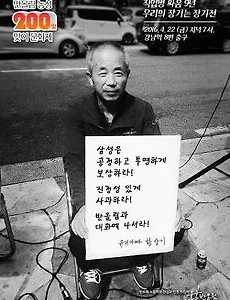 반올림 농성
200일
맞이 문화제
직업병 싸움 9년
우리의 장기는 장기전
2016. 4. 22 (금) 저녁 7시,
강남역 8번 출구
삼성은
공정하고 투명하게
보상하라!
진정성 있게
사과하라!
반올림과
대화에 나서라!